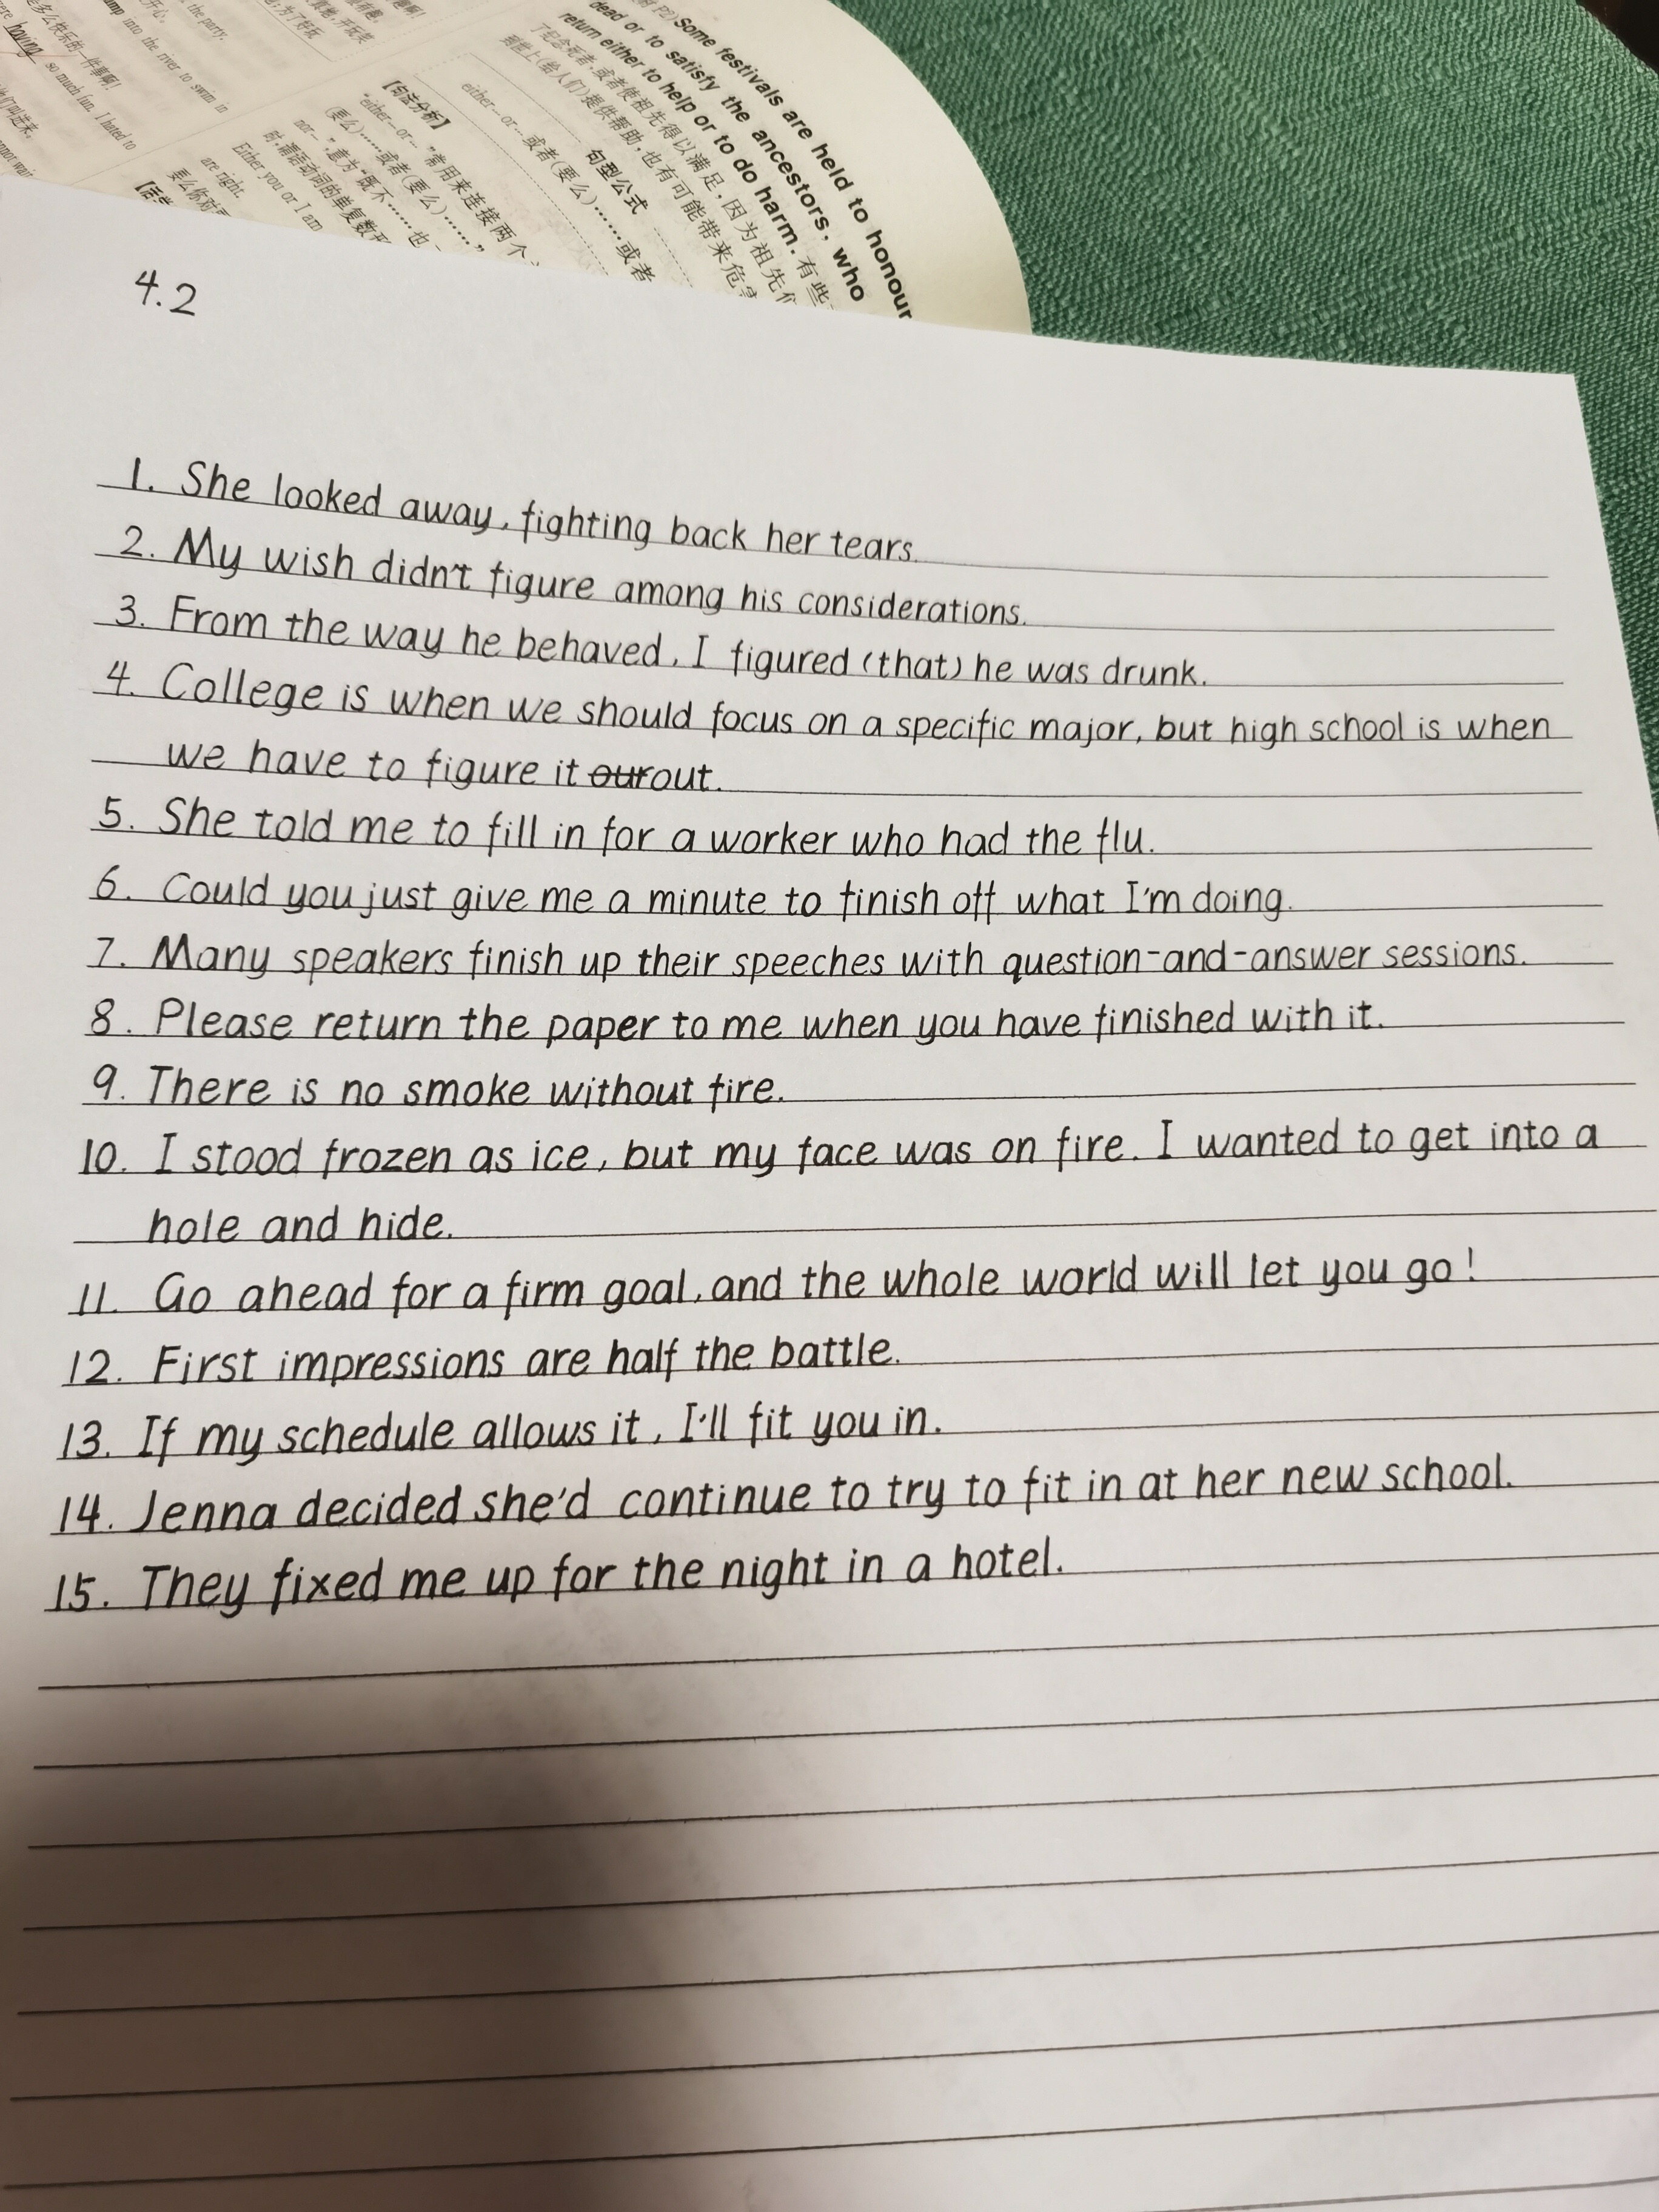 having
so much fun. I hated to
the party.
into the river to swim in
Some festivals are held to honour
dead or to satisfy the ancestors, who
return either to help or to do harm. 有些
了纪念死者,或者使祖先得以满足,因为祖先们
到世上(给人们)提供帮助,也有可能带来危害
句型公式
either…or… 或者(要么)……或者
【句法分析】
"either…or…"常用来连接两个
(要么)……或者(要么)……"
nor…",意为"既不……也
时,谓语动词的单复数形
Either you or I am
are right.
要么你对
4.2
1. She looked away, fighting back her tears.
2. My wish didn't figure among his considerations.
3. From the way he behaved, I figured (that) he was drunk.
4. College is when we should focus on a specific major, but high school is when
we have to figure it our out.
5. She told me to fill in for a worker who had the flu.
6. Could you just give me a minute to finish off what I'm doing.
7. Many speakers finish up their speeches with question-and-answer sessions.
8. Please return the paper to me when you have finished with it.
9. There is no smoke without fire.
10. I stood frozen as ice, but my face was on fire. I wanted to get into a
hole and hide.
11. Go ahead for a firm goal, and the whole world will let you go!
12. First impressions are half the battle.
13. If my schedule allows it, I'll fit you in.
14. Jenna decided she'd continue to try to fit in at her new school.
15. They fixed me up for the night in a hotel.